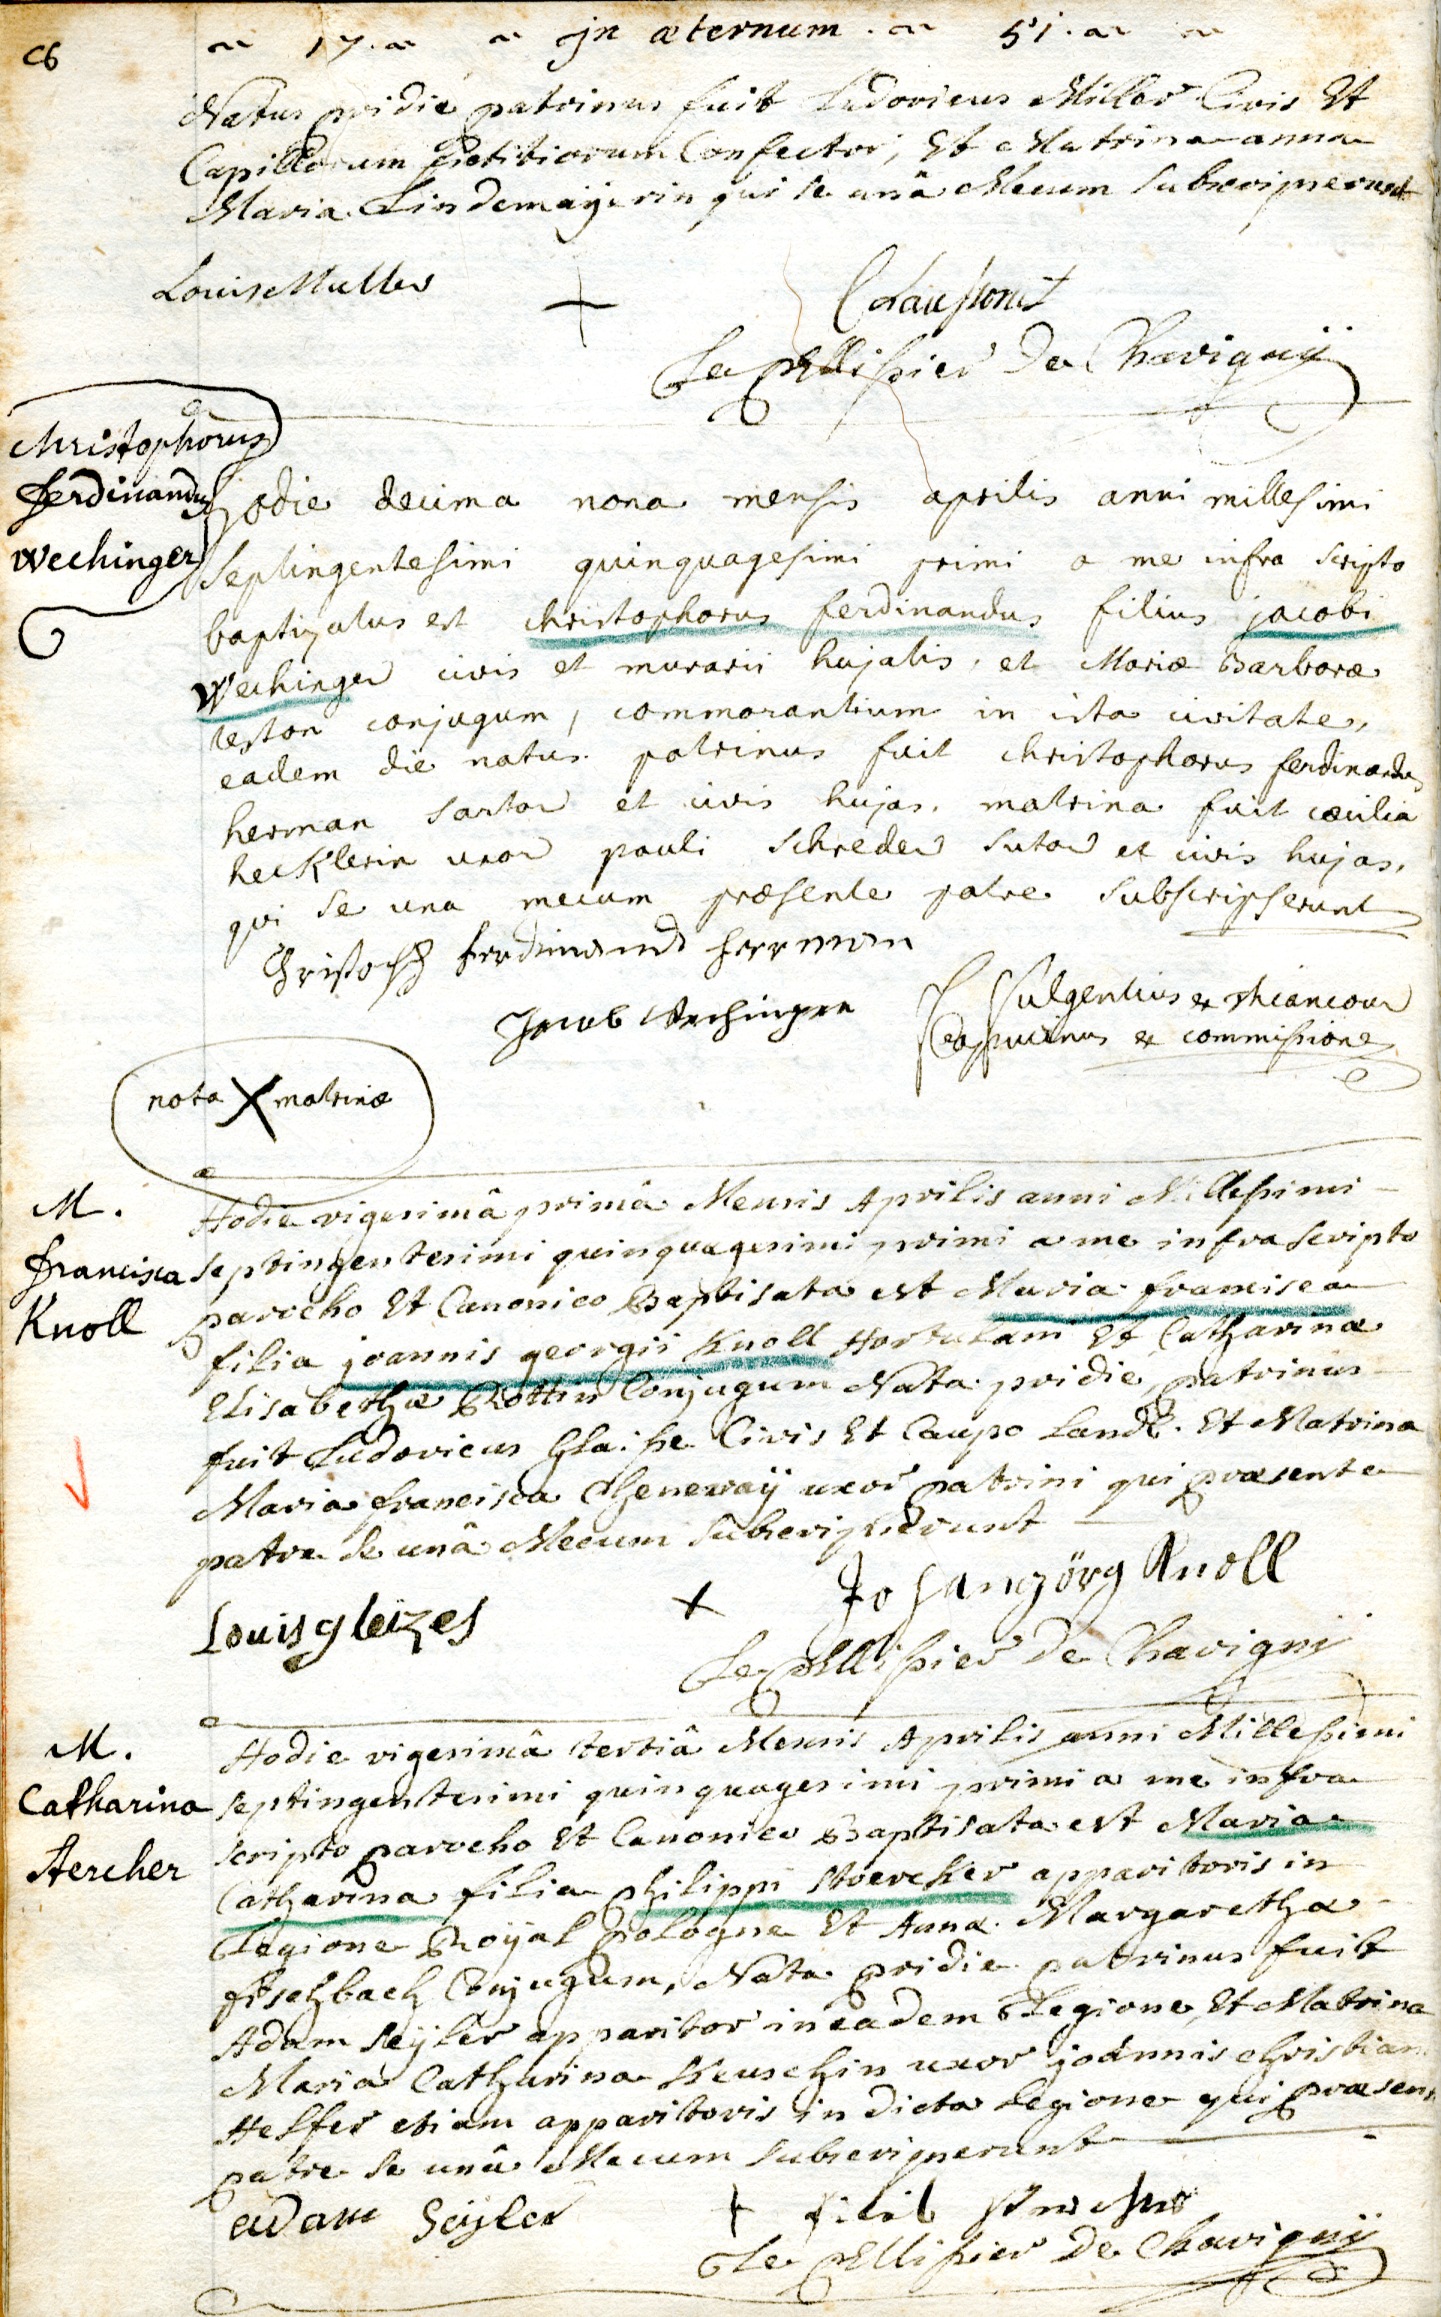 C6
17. In æternum. 51.
Natus pridie patrinus fuit Ludovicus Miller Civis Et
Capillorum fictitiorum Confector, Et Matrina anna
Maria Lindemaÿerin qui se unâ Mecum subscripserunt
Louis Muller +
Le Pellissier De Chavignÿ
Christophorus
ferdinandus
Wechinger
hodie decima nona mensis aprilis anni millesimi
septingentesimi quinquagesimi primi a me infra scripto
baptizatus est christophorus ferdinandus filius jacobi
Wechinger civis et murarii hujatis, et Mariæ Barbaræ
teston conjugum, commorantium in ista civitate,
eadem die natus. patrinus fuit christophorus ferdinandus
herman sartor et civis hujas, matrina fuit cæcilia
hecklerin uxor pauli schreder sutor et civis hujas,
qui se una mecum præsente patre subscripserunt
Christoph ferdinand herrman
Jacob Wechinger
f fulgentius ex
Capucinus ex commissione
nota X matrinæ
M.
francisca
Knoll
Hodie vigesimâ primâ Mensis Aprilis anni Millesimi
septingentesimi quinquagesimi primi a me infra scripto
parocho Et Canonico Baptisata est Maria francisca
filia joannis georgii Knoll Hortulani Et Catharinæ
Elisabethæ Rottin Conjugum Nata pridie, patrinus
fuit Ludovicus Glaise Civis Et Caupo Land. Et Matrina
Maria francisca Cheneway uxor patrini qui præsente
patre se unâ Mecum subscripserunt
Louis gleizes X Johan görg Knoll
Le Pellissier De Chavigni
M.
Catharina
Stercher
Hodie vigesimâ tertiâ Mensis Aprilis anni Millesimi
septingentesimi quinquagesimi primi a me infra
scripto parocho Et Canonico Baptisata est Maria
Catharina filia philippi Stoercker apparitoris in
Legione Roÿal pologne Et Annæ Margarethæ
fischbach Conjugum, Nata pridie patrinus fuit
Adam Seÿler apparitor in eadem Legione, Et Matrina
Maria Catharina Keuschin uxor joannis christian
Helffer etiam apparitoris in dicta Legione qui præsen
patre se unâ Mecum subscripserunt
adam Seÿler +
Le Pellissier De Chavignÿ